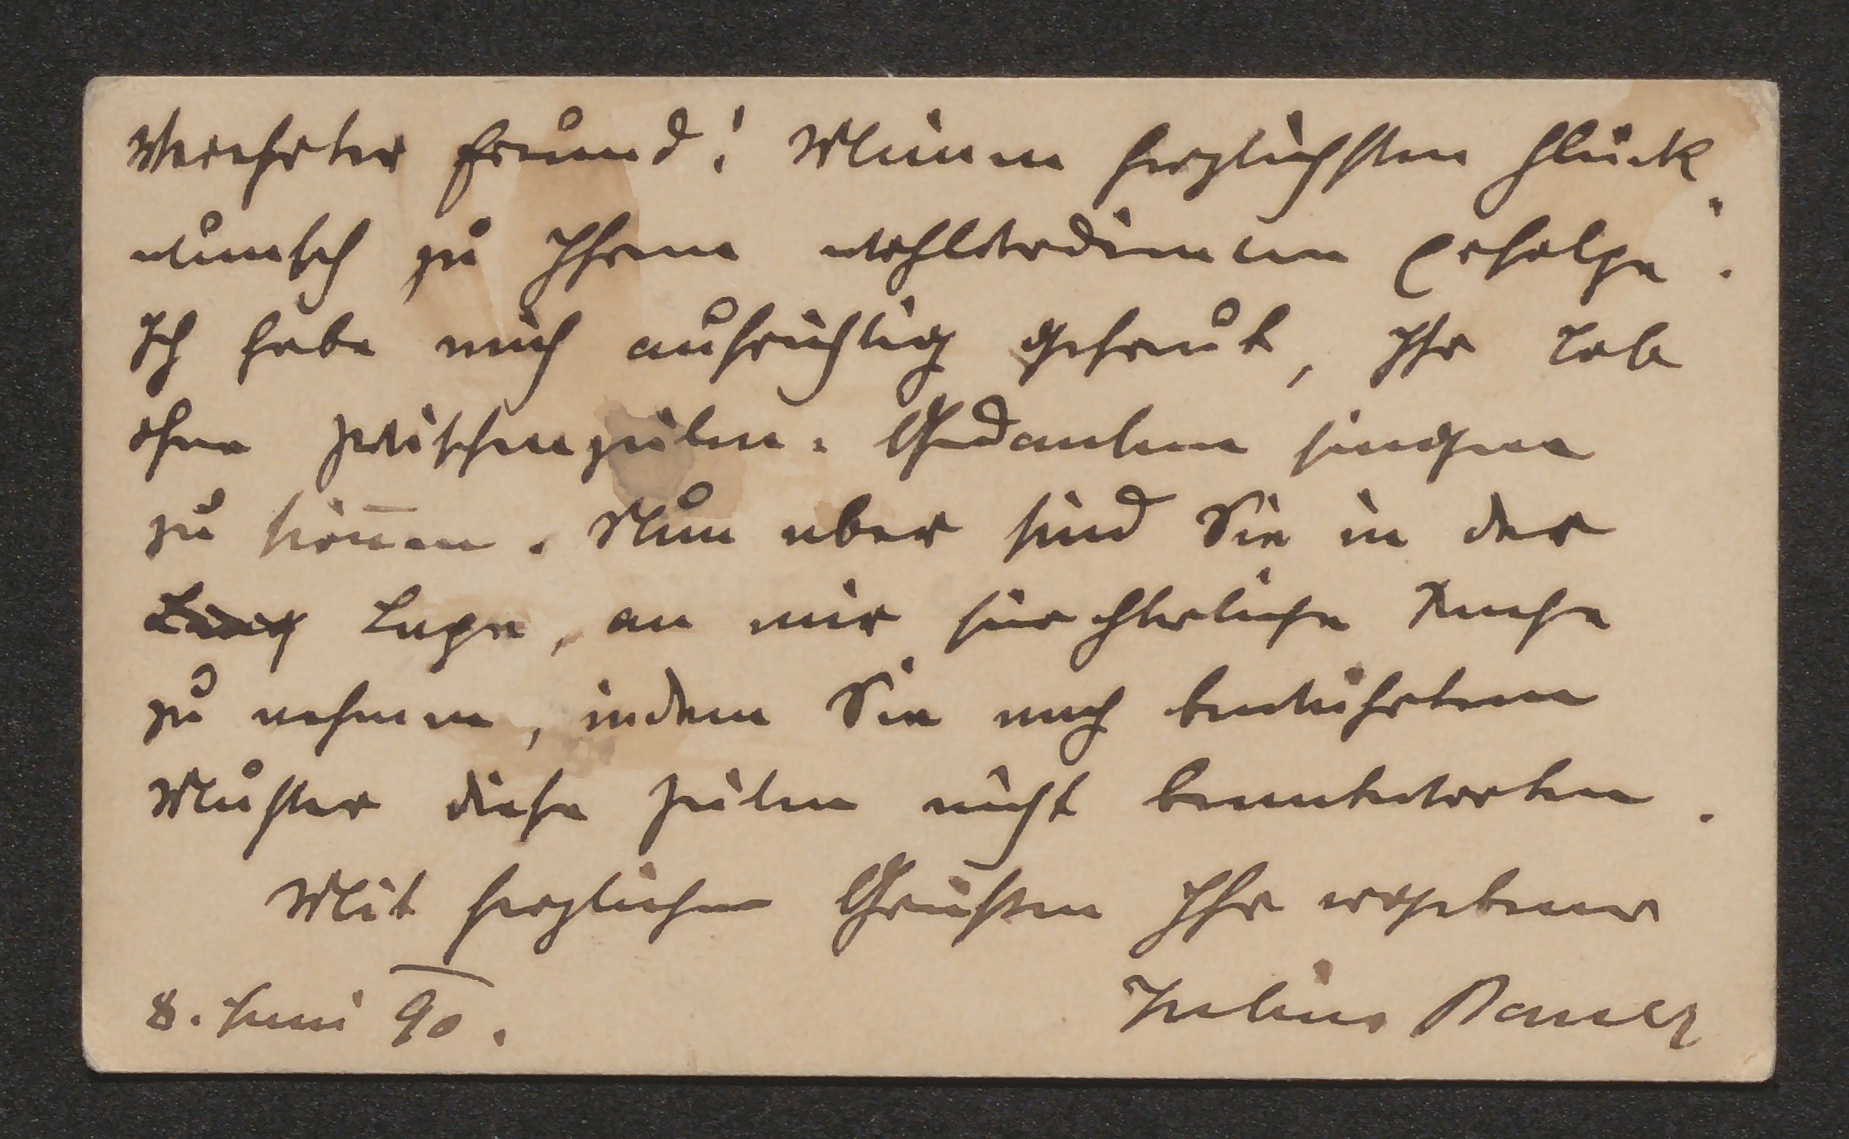 Verehrter Freund! Meinen herzlichsten Glück
wunsch zu Ihrem wohlverdienten Erfolge.
Ich habe mich aufrichtig gefreut, Ihr Lob
ohne Zwischenzeilen-Gedanken singen
zu können. Nun aber sind Sie in der
Lage, an mir fürchterliche Rache
zu nehmen, indem Sie nach berühmtem
Muster diese Zeilen nicht beantworten.
Mit herzlichen Grüßen Ihr ergebener
8. Juni 90. Julius Bauer